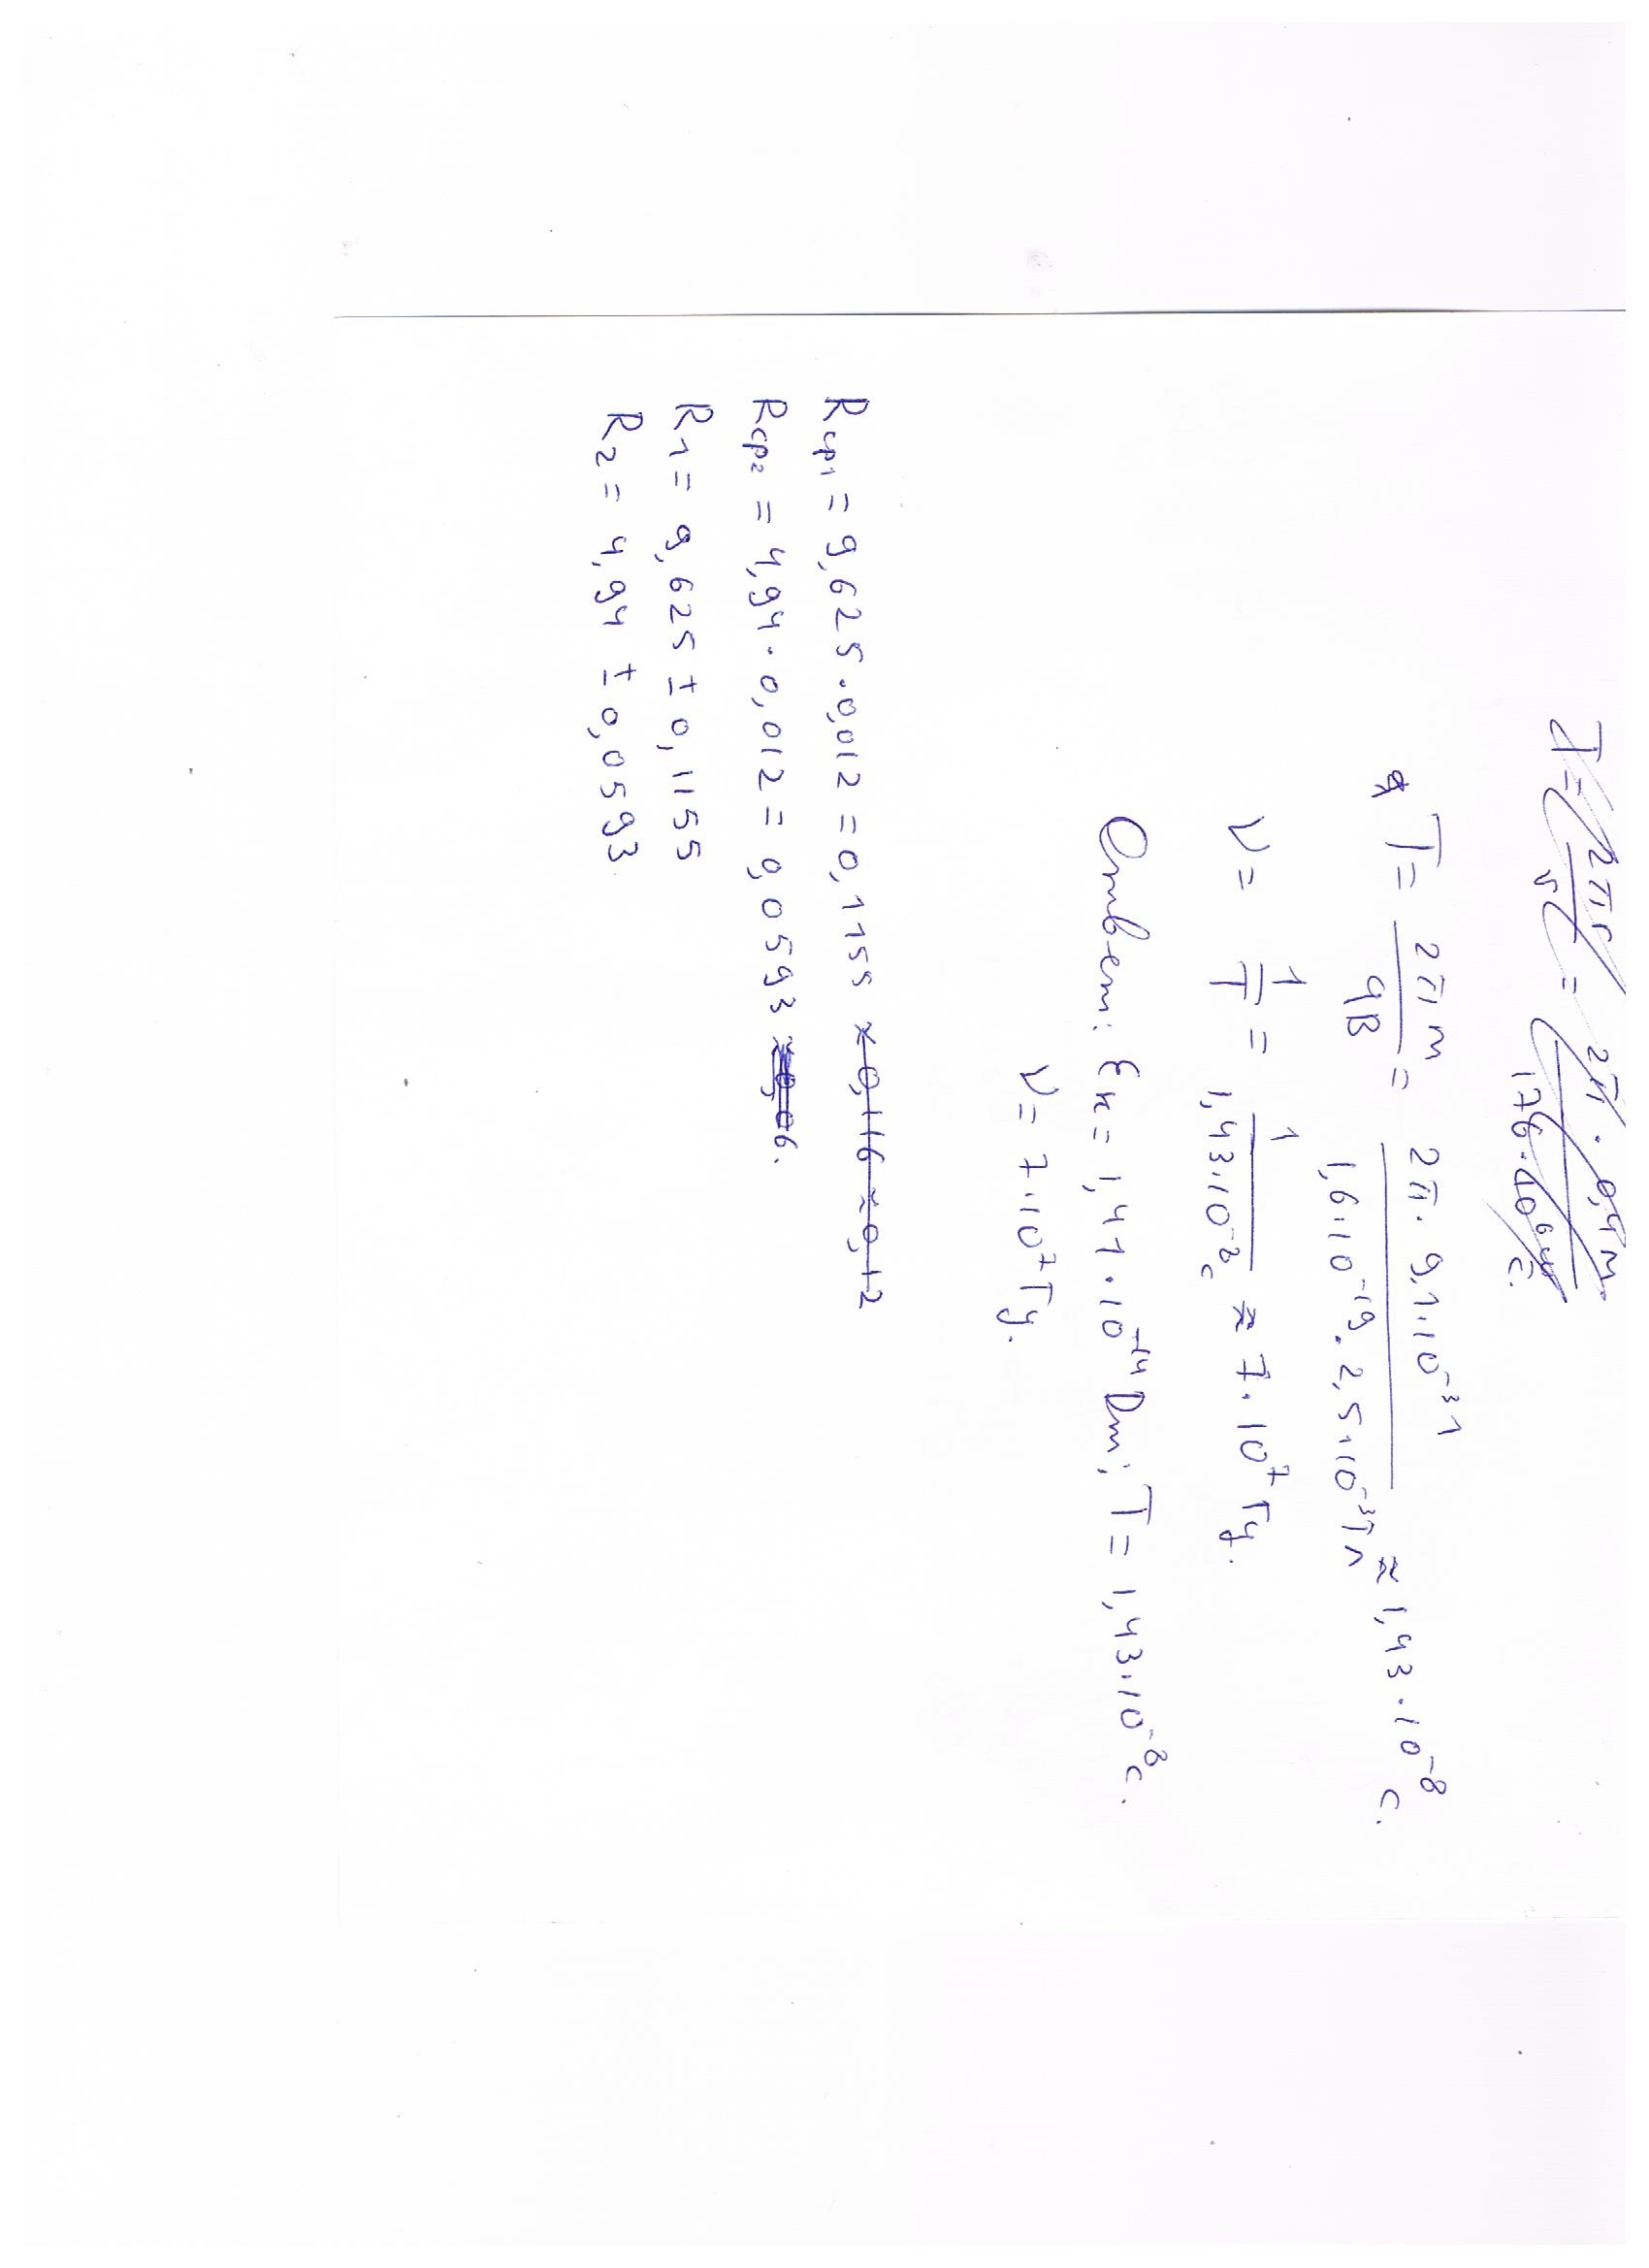 T = 2πr/v = 2π · 0,4м / 176·10⁶ м/с.
T = 2πm/qB = 2π · 9,1·10⁻³¹ / 1,6·10⁻¹⁹ · 2,5·10⁻³Тл ≈ 1,43·10⁻⁸ с.
ν = 1/T = 1 / 1,43·10⁻⁸с ≈ 7·10⁷ Гц.
Ответ: Eк = 1,41·10⁻¹⁴ Дж; T = 1,43·10⁻⁸с.
ν = 7·10⁷ Гц.
Rср₁ = 9,625·0,012 = 0,1155 ≈ 0,116 ≈ 0,12
Rср₂ = 4,94·0,012 = 0,0593 ≈ 0,06.
R₁ = 9,625 ± 0,1155
R₂ = 4,94 ± 0,0593